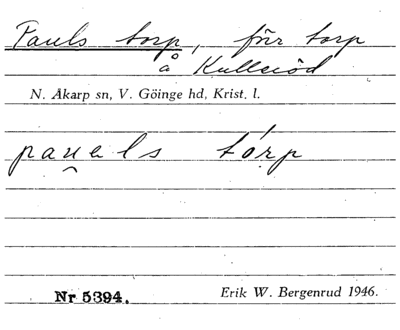 Pauls torp, förr torp
å Kullsröd
N. Åkarp sn, V. Göinge hd, Krist. l.
pau̯əls tórp
Nr 5394.
Erik W. Bergenrud 1946.